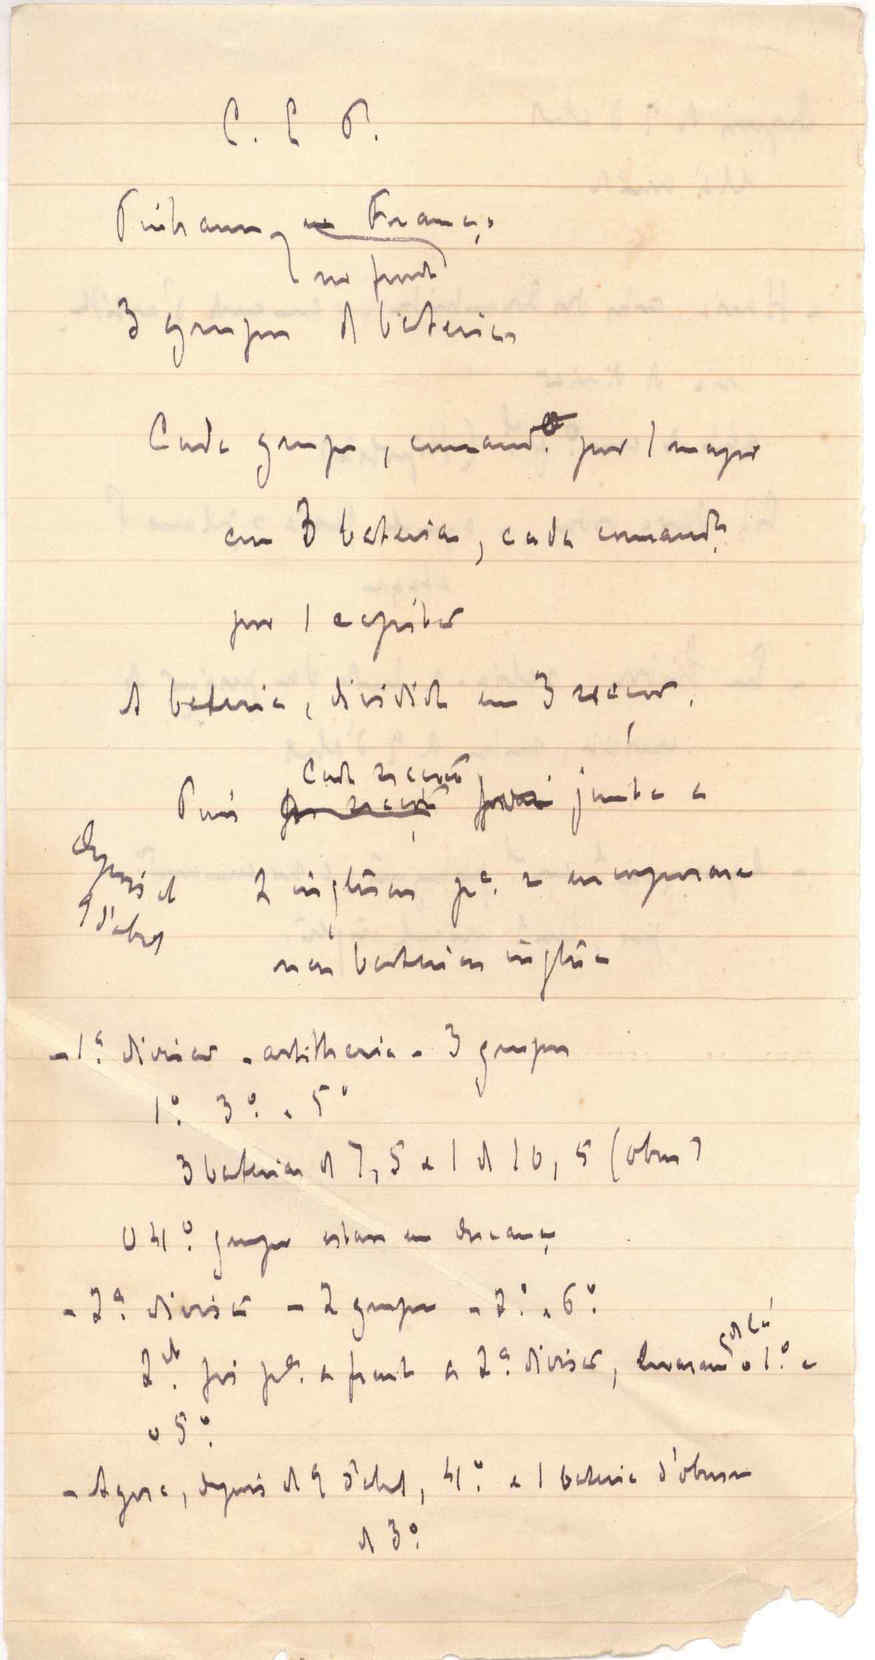 C. E P.
Tinhamos em França
no front
3 grupos de baterias
Cada grupo, comand.º por 1 major
em 3 baterias, cada comand.ª
por 1 capitão
A bateria, dividida em 3 secções.
Cada secção
Pois secção foi junta a
depois de
9 d'abril
2 inglesas p.ª se encorporar
nas baterias inglesas
- 1.ª divisão - artilharia - 3 grupos
1.º 3.º e 5.º
3 baterias de 7,5 e 1 de 10,5 (obus)
O 4.º grupo estava em descanço
- 2.ª divisão - 2 grupos - 2.º e 6.º
Qd.º foi p.ª a frente a 2.ª divisão, levaram o 1.º e
o 5.º
- Agora, depois de 9 d'abril, 4.º e 1 bateria d'obuses
do 3.º